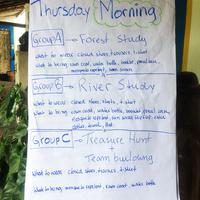 Thursday Morning
Group A - Forest Study
What to wear: closed shoes, trousers, t-shirt
What to bring: rain coat, water bottle, booklet, pencil case,
mosquito repellent, sun screen
Group B - River Study
What to wear: closed shoes, shorts, t-shirt
What to bring: rain coat, water bottle, booklet, pencil case,
mosquito repellent, sun screen, extra
clothes, towel,
Group C - Treasure Hunt
Team building
What to wear: closed shoes, trousers, t-shirt
What to bring: mosquito repellent, rain coat, water bottle